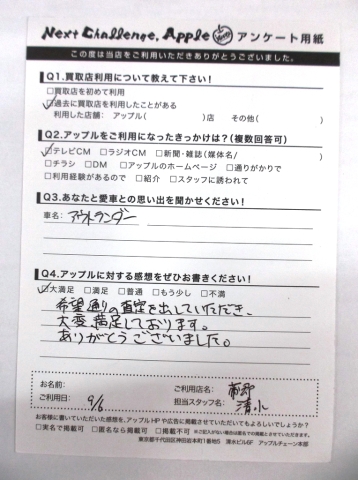 Next Challenge, Apple アンケート用紙
この度は当店をご利用いただきありがとうございました。
Q1.買取店利用について教えて下さい!
□買取店を初めて利用
☑過去に買取店を利用したことがある
利用した店舗: アップル( )店 その他( )
Q2.アップルをご利用になったきっかけは?(複数回答可)
☑テレビCM □ラジオCM □新聞・雑誌(媒体名/ )
□チラシ □DM □アップルのホームページ □通りがかりで
□利用経験があるので □紹介 □スタッフに誘われて
Q3.あなたと愛車との思い出を聞かせください!
車名: アウトランダー
Q4.アップルに対する感想をぜひお書きください!
☑大満足 □満足 □普通 □もう少し □不満
希望通りの査定を出していただき、
大変満足しております。
ありがとうございました。
お名前:
ご利用店名:
ご利用日: 9/6
担当スタッフ名: 清水
お客様に書いていただいた感想を、アップルHPや広告に掲載させていただいてもよろしいでしょうか?
□実名で掲載可 □匿名なら掲載可 □掲載不可 ※ご記入がない場合は匿名での掲載とさせていただきます。
東京都千代田区神田岩本町1番地5 清水ビル6F アップルチェーン本部